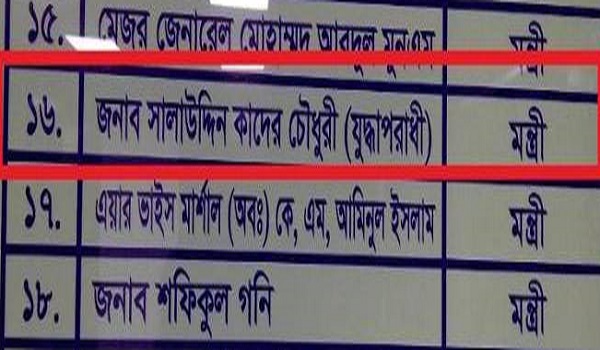 ১৫. মেজর জেনারেল মোহাম্মদ আবদুল মুনএম মন্ত্রী
১৬. জনাব সালাউদ্দিন কাদের চৌধুরী (যুদ্ধাপরাধী) মন্ত্রী
১৭. এয়ার ভাইস মার্শাল (অবঃ) কে, এম, আমিনুল ইসলাম মন্ত্রী
১৮. জনাব শফিকুল গনি মন্ত্রী